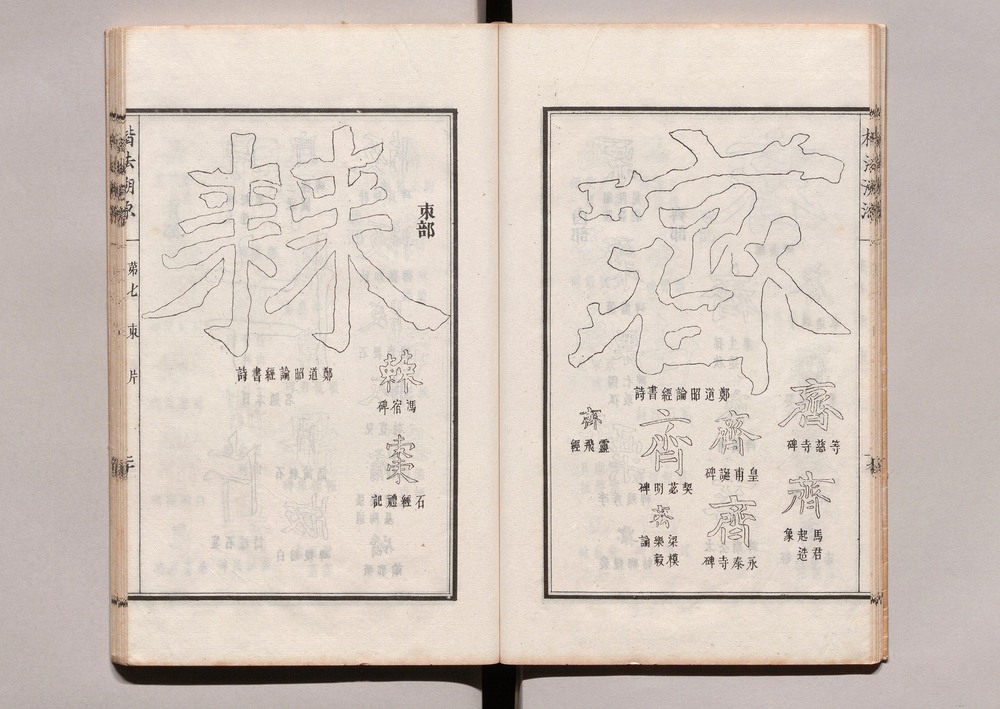 齊
鄭道昭論經書詩
齊
等慈寺碑
齊
馬君起造象
齊
皇甫誕碑
齊
永泰寺碑
齊
契苾明碑
齊
梁模樂毅論
齊
靈飛經
朿部
棘
鄭道昭論經書詩
棘
馮宿碑
棗
石經禮記
楷法溯源
第七
朿
片